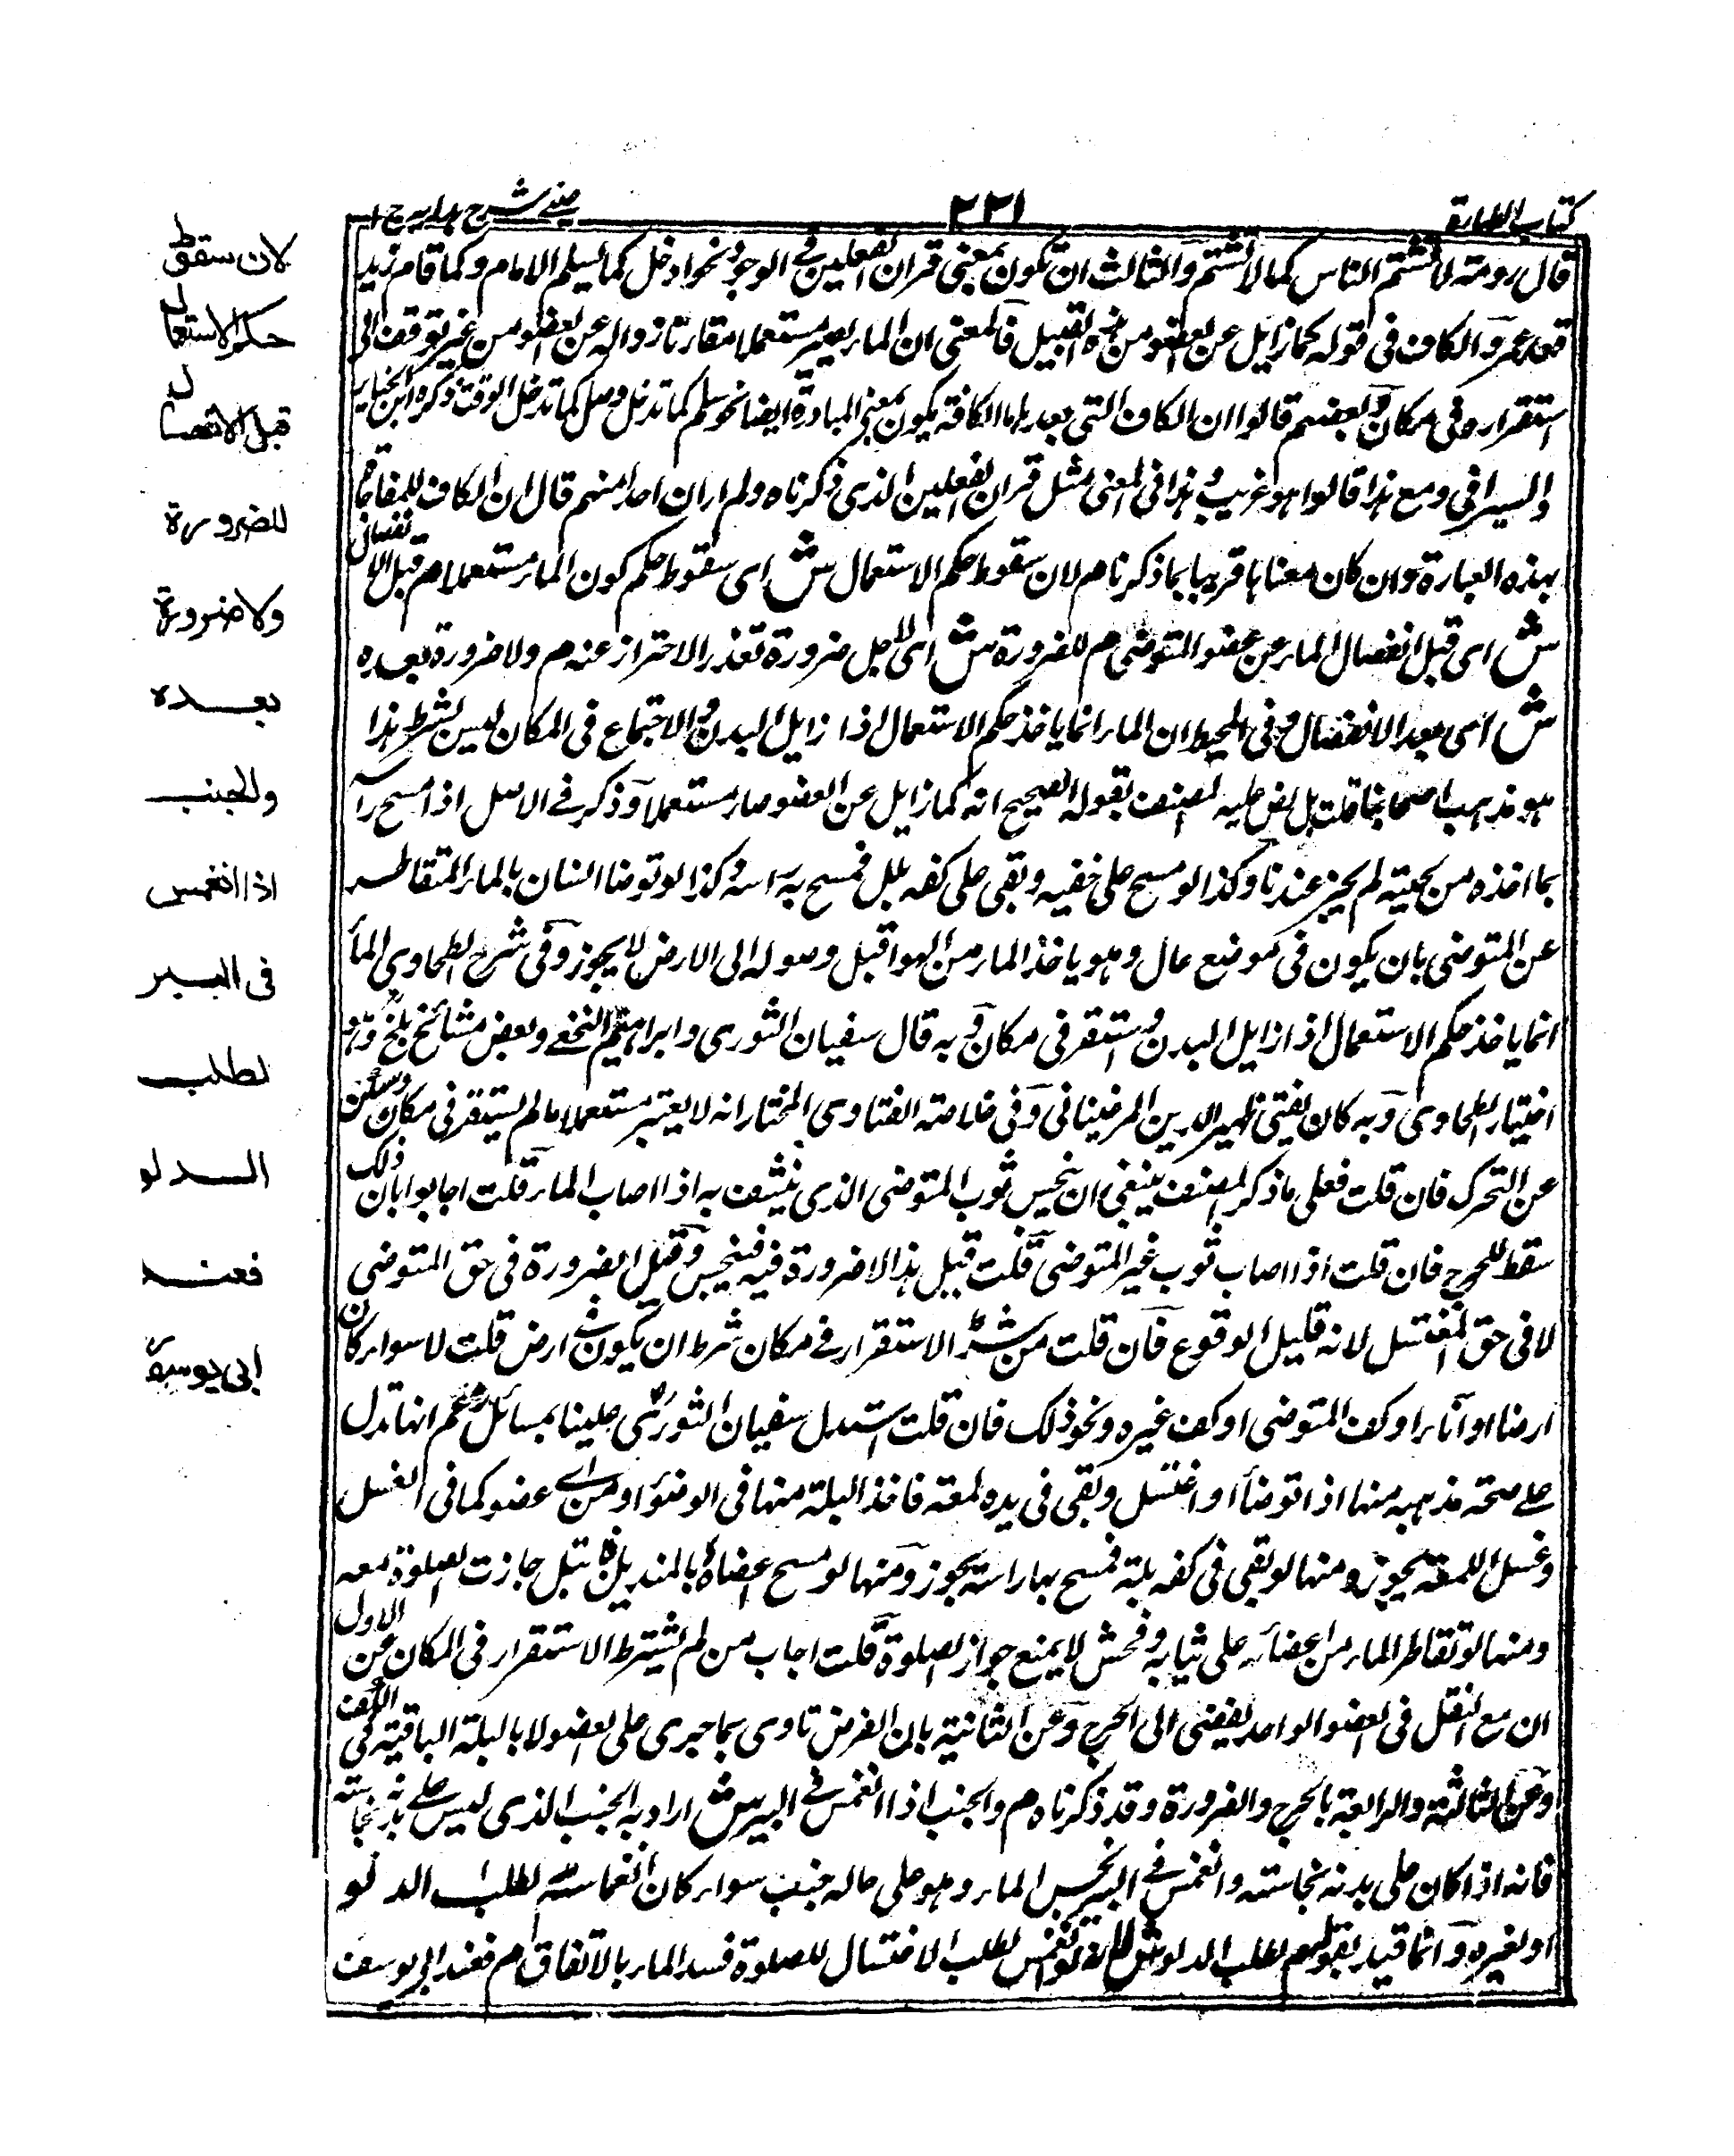 كتاب الطهارة
٢٢١
عينى شرح هدايه ج ١
قال رومته لا تشتم الناس كما لا تشتم والثالث ان تكون بمعنى قران الفعلين فى الوجود نحو ادخل كما يسلم الامام وكما قام زيد
قعد عمرو والكاف فى قوله كما زايل عن العضو من هذه القبيل فالمعنى ان الماء يصير مستعملا مقارنا زواله عن العضو من غير توقف الى
استقراره فى مكان وبعضهم قالوا ان الكاف التى بعدها ما الكافة يكون بمعنى المبادرة ايضا نحو سلم كما تدخل وصل كما تدخل الوقت ذكره ابن الخباز
والسيرافى ومع هذا قالوا هو غريب وهذا فى المعنى مثل قران الفعلين الذى ذكرناه ولم ار ان احدا منهم قال ان الكاف للمفاجاة
بهذه العبارة وان كان معناها قريبا بما ذكرنا م لان سقوط حكم الاستعمال ش اى سقوط حكم كون الماء مستعملا م قبل الانفصال
ش اى قبل انفصال الماء عن عضو المتوضى م للضرورة ش اى لاجل ضرورة تعذر الاحتراز عنه م ولا ضرورة بعده
ش اى بعد الانفصال وفى المحيط ان الماء انما ياخذ حكم الاستعمال اذا زايل البدن والاجتماع فى المكان ليس بشرط هذا
هو مذهب اصحابنا قلت بل نص عليه المصنف بقوله الصحيح انه كما زايل عن العضو صار مستعملا وذكر فى الاصل اذا مسح راسه
بما اخذه من لحيته لم يجز عندنا وكذا لو مسح على خفيه وبقى على كفه بلل فمسح به راسه وكذا لو توضا انسان بالماء المتقاطر
عن المتوضى بان يكون فى موضع عال وهو ياخذ الماء من الهواء قبل وصوله الى الارض لا يجوز وفى شرح الطحاوى الماء
انما ياخذ حكم الاستعمال اذا زايل البدن واستقر فى مكان وبه قال سفيان الثورى وابراهيم النخعى وبعض مشائخ بلخ وهو
اختيار الطحاوى وبه كان يفتى ظهير الدين المرغينانى وفى خلاصة الفتاوى المختار انه لا يعتبر مستعملا ما لم يستقر فى مكان وسكن
عن التحرك فان قلت فعلى ما ذكر المصنف ينبغى ان ينجس ثوب المتوضى الذى ينشف به اذا اصاب الماء قلت اجابوا بان ذلك
سقط للحرج فان قلت اذا اصاب ثوب غير المتوضى قلت قيل هذا لا ضرورة فيه فينجس وقيل الضرورة فى حق المتوضى
لا فى حق المغتسل لانه قليل الوقوع فان قلت من شرط الاستقرار فى مكان شرط ان يكون فى ارض قلت لا سواء كان
ارضا او اناء او كف المتوضى او كف غيره ونحو ذلك فان قلت استدل سفيان الثورى علينا بمسائل زعم انها تدل
على صحة مذهبه منها اذا توضأ او اغتسل وبقى فى يده لمعة فاخذ البلة منها فى الوضوء او من اى عضو كما فى الغسل
وغسل اللمعة يجوز ومنها لو بقى فى كفه بلة فمسح بها راسه يجوز ومنها لو مسح اعضاه بالمنديل فابتل جازت الصلوة معه
ومنها لو تقاطر الماء من اعضائه على ثيابه وفحش لا يمنع جواز الصلوة قلت اجاب من لم يشترط الاستقرار فى المكان عن الاول
ان مع النقل فى العضو الواحد يفضى الى الحرج وعن الثانية بان الفرض تاوى بما جرى على العضو لا بالبلة الباقية فى الكف
وعن الثالثة والرابعة بالحرج والضرورة وقد ذكرناه م والجنب اذا انغمس فى البير ش اراد به الجنب الذى ليس على بدنه نجاسة
فانه اذا كان على بدنه نجاسة وانغمس فى البير نجس الماء وهو على حاله جنب سواء كان انغماسه لطلب الدلو
او لغيره وانما قيد بقوله م لطلب الدلو ش لانه لو انغمس لطلب الاغتسال للصلوة فسد الماء بالاتفاق م فعند ابى يوسف
لان سقوط
حكم الاستعمال
قبل الانفصال
للضرورة
ولا ضرورة
بعده
والجنب
اذا انغمس
فى البير
لطلب
الدلو
فعند
ابى يوسف